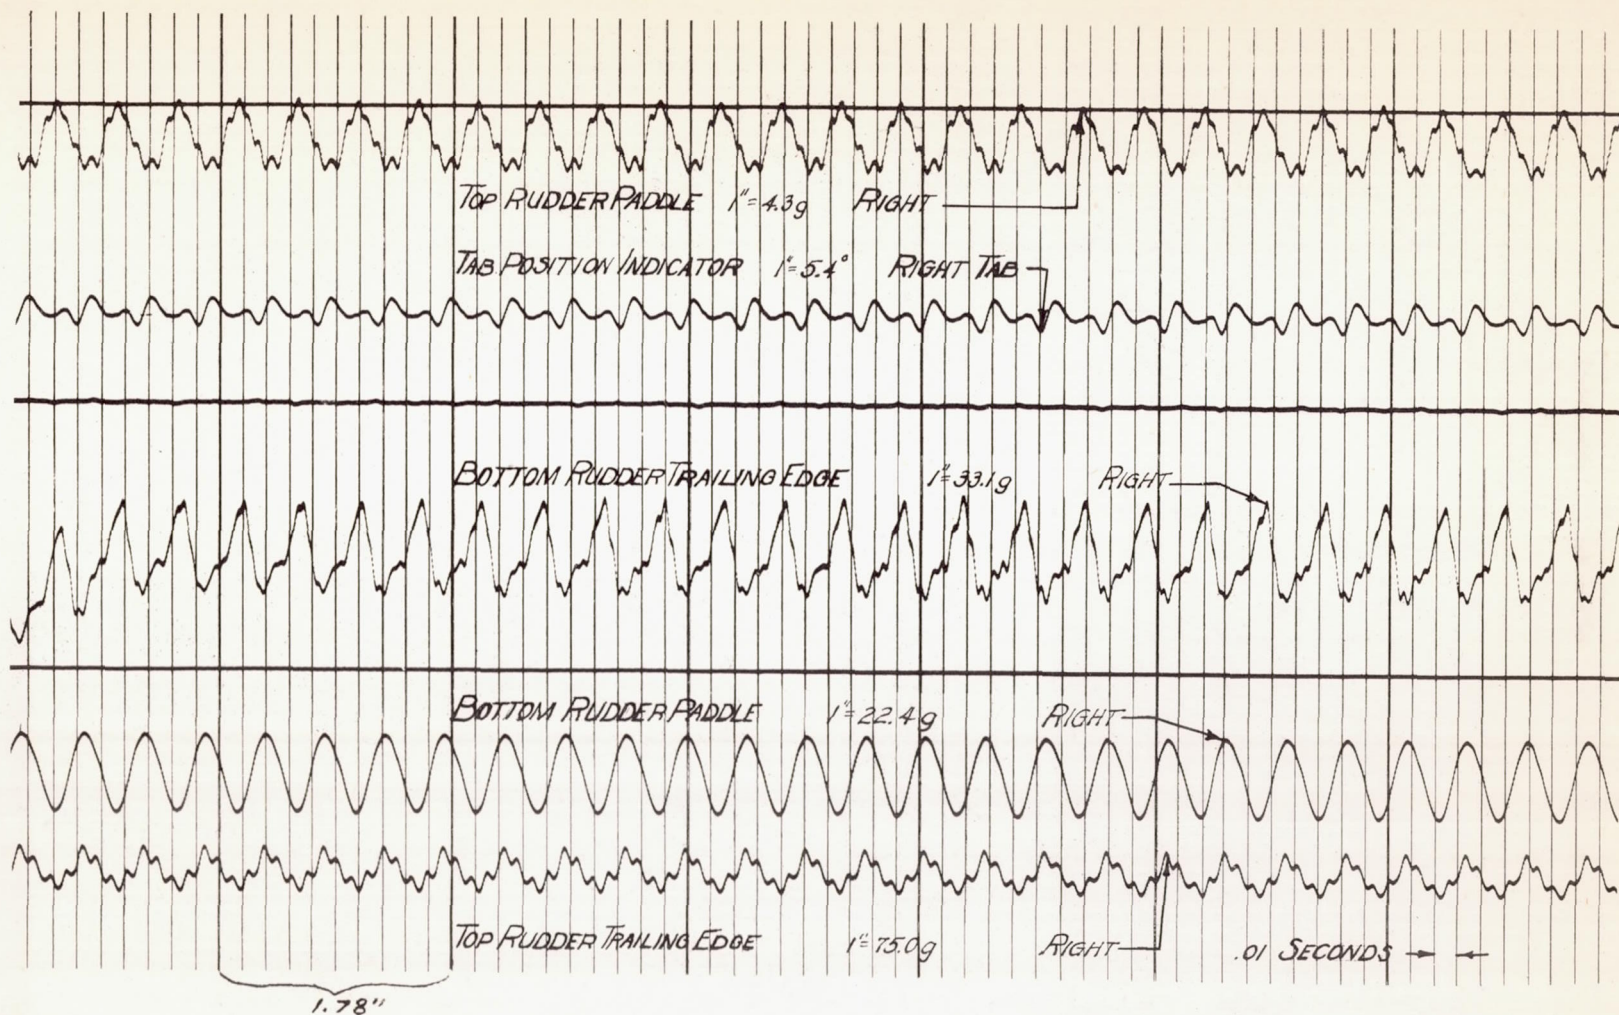 TOP RUDDER PADDLE 1"=4.3g RIGHT
TAB POSITION INDICATOR 1"=5.4° RIGHT TAB
BOTTOM RUDDER TRAILING EDGE 1"=33.1g RIGHT
BOTTOM RUDDER PADDLE 1"=22.4g RIGHT
TOP RUDDER TRAILING EDGE 1"=75.0g RIGHT .01 SECONDS
1.78"